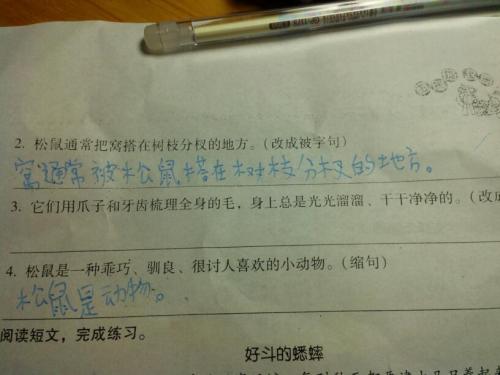 2. 松鼠通常把窝搭在树枝分杈的地方。(改成被字句)
窝通常被松鼠搭在树枝分杈的地方。
3. 它们用爪子和牙齿梳理全身的毛，身上总是光光溜溜、干干净净的。(改成
4. 松鼠是一种乖巧、驯良、很讨人喜欢的小动物。(缩句)
松鼠是动物。
阅读短文，完成练习。
好斗的蟋蟀